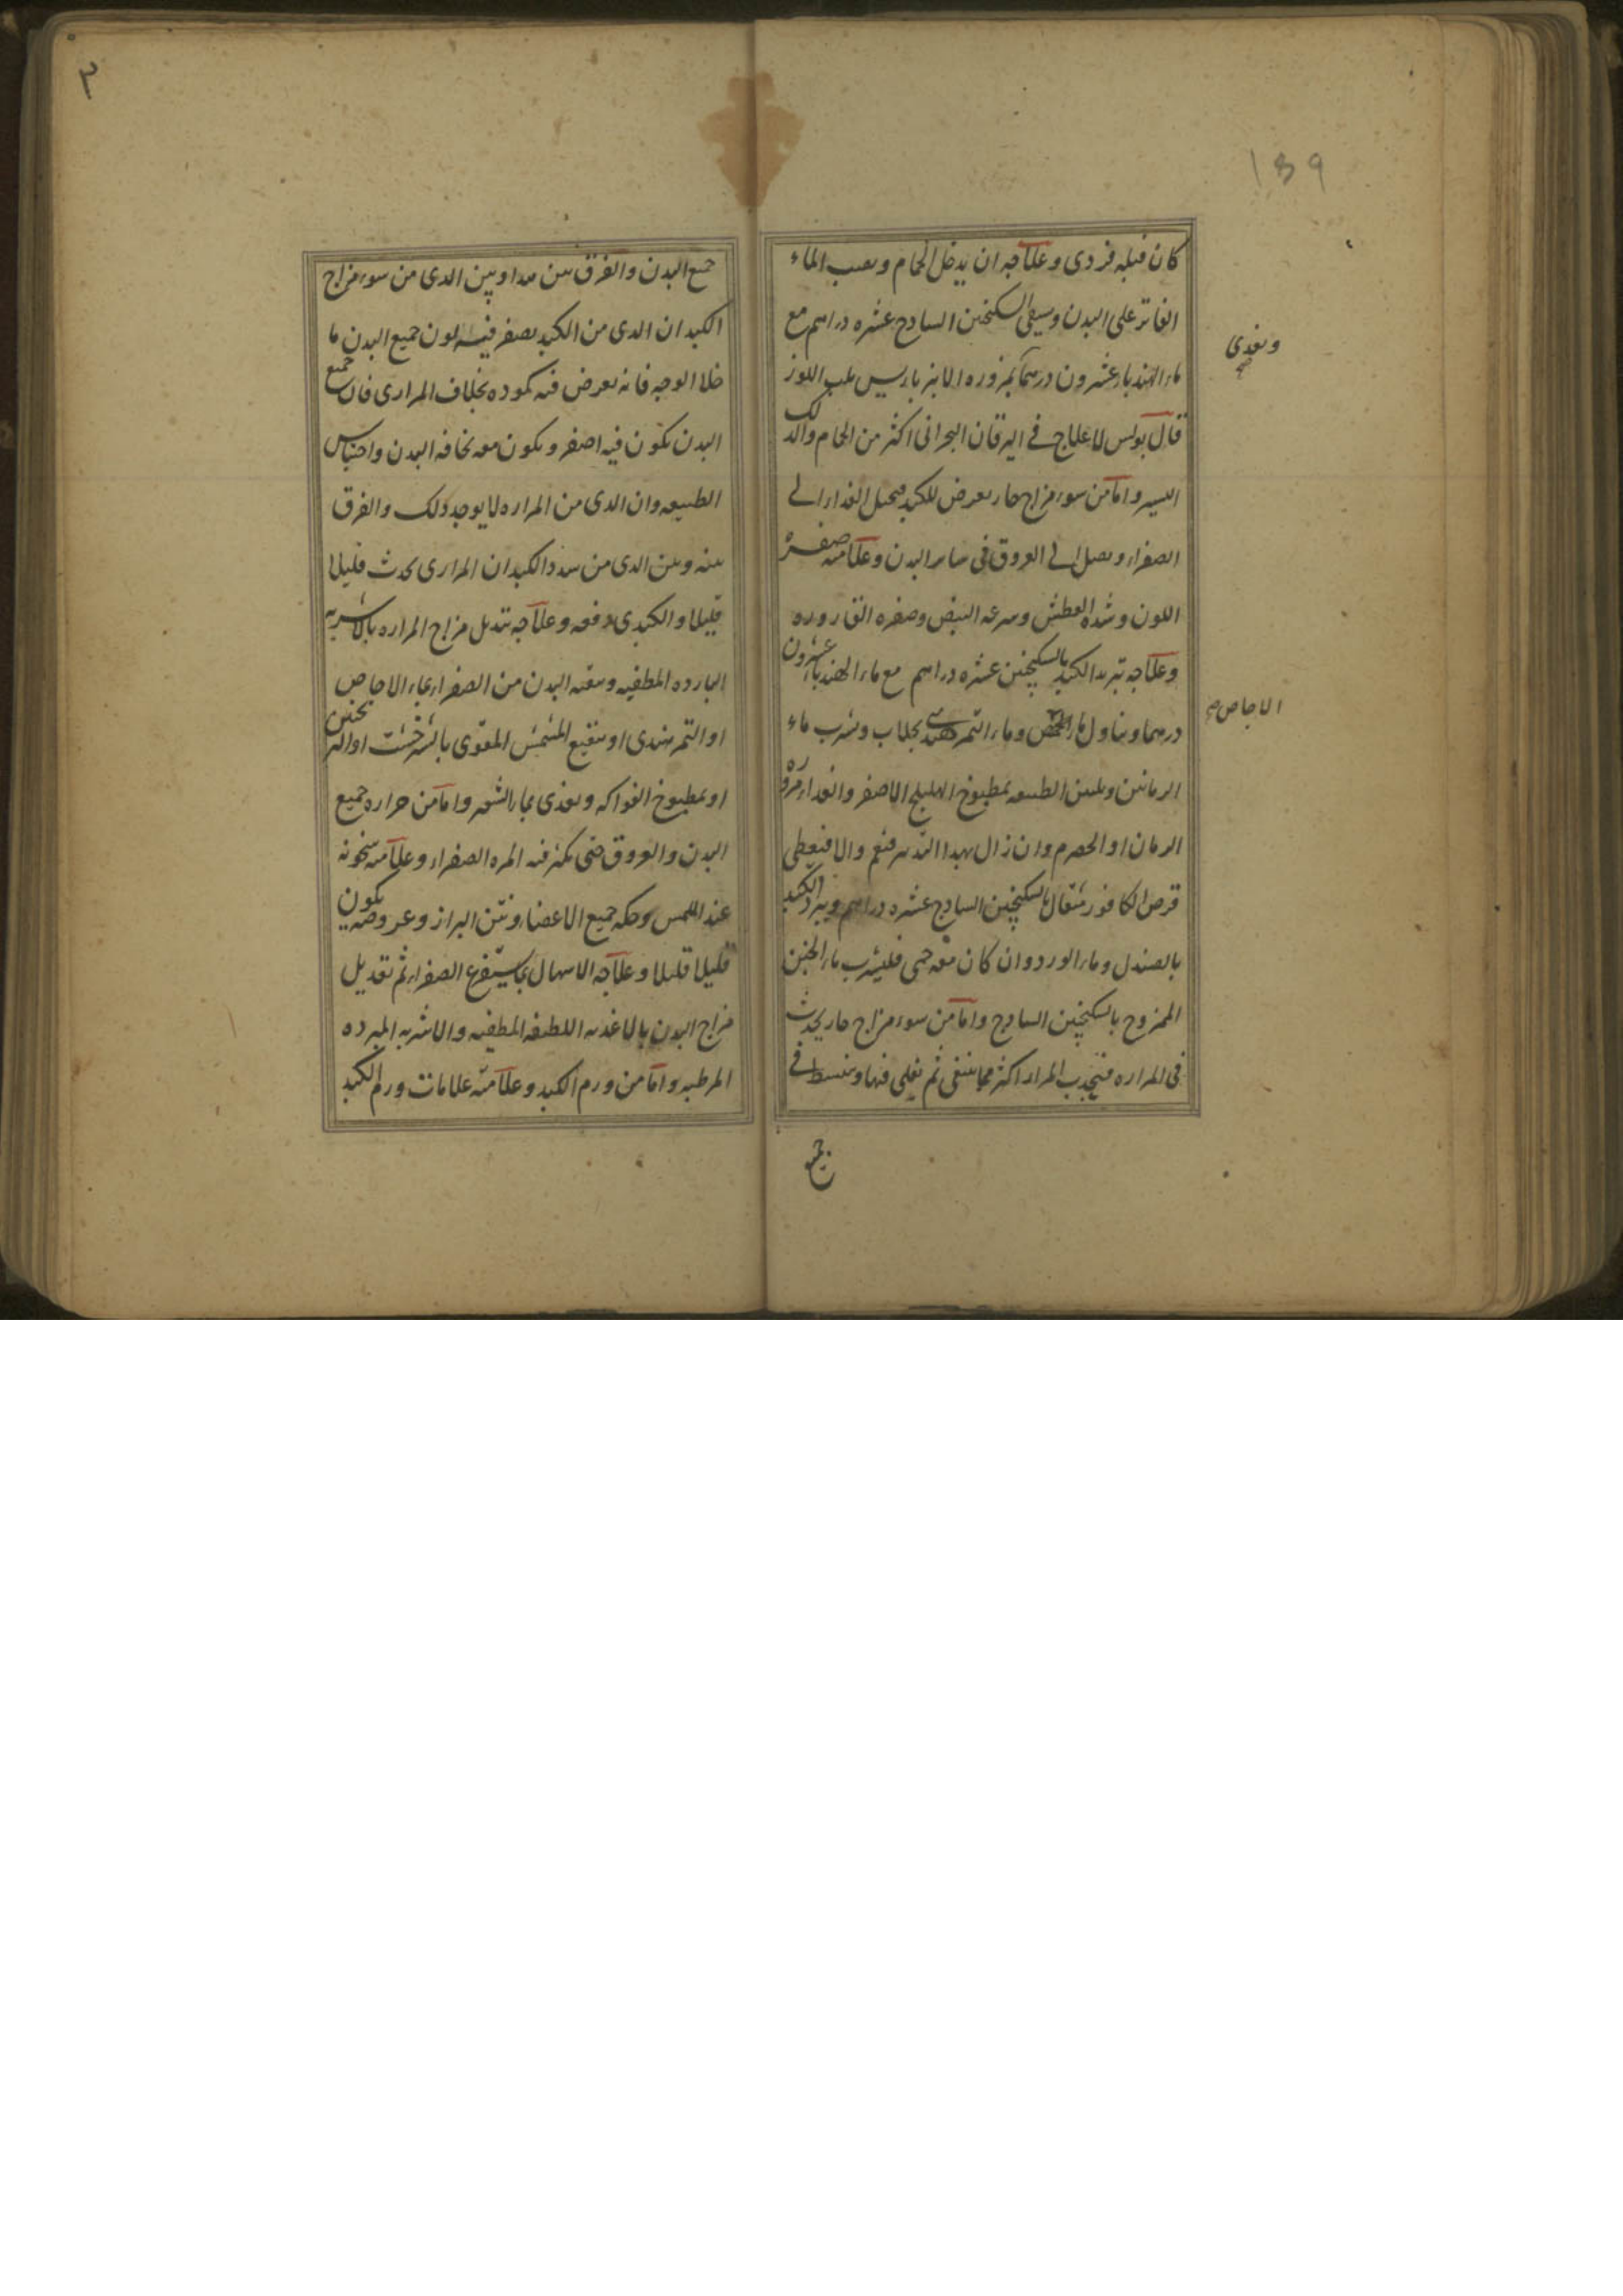 139
كان قبله فردى وعلاجه ان يدخل الحمام ويصب الماء
الفاتر على البدن ويسقى السكنجبن السادج عشره دراهم مع
ماء الهندباء عشرون درهما بمزوره الانبرباريس بلب اللوز
ويغدى صح
قال بولس لا علاج فى اليرقان البحرانى اكثر من الحمام والدلك
اليسير واما من سوء مزاج حار يعرض للكبد فيحيل الغداء الى
الصفراء ويصل الى العروق فى ساير البدن وعلامته صفرة
اللون وشده العطش وسرعه النبض وصفره القاروره
وعلاجه تبريد الكبد بالسكنجبن عشره دراهم مع ماء الهندباء عشرون
درهما ويناول ماء الحمص وماء التمر هندى بجلاب وشرب ماء
الاجاص صح
الرمانين وتليين الطبيعه بمطبوخ الهليلج الاصفر والغداء مزوره
الرمان او الحصرم وان زال بهدا التدبير فنعم والا فيعطى
قرص الكافور مثقال بالسكنجبين السادج عشره دراهم ويبرد الكبد
بالصندل وماء الورد وان كان معه حمى فليشرب ماء الجبن
الممزوج بالسكنجبين السادج واما من سوء مزاج حار يحدث
فى المراره فتجدب المرار اكثر مما ينبغى ثم يغلى فيها وينبسط فى
جميع
٢
جميع البدن والفرق بين هدا وبين الدى من سوء مزاج
الكبد ان الدى من الكبد يصفر فيه لون جميع البدن ما
خلا الوجه فانه يعرض فيه كموده بخلاف المرارى فان جميع
البدن يكون فيه اصفر ويكون معه نحافه البدن واحتباس
الطبيعه وان الدى من المراره لا يوجد دلك والفرق
بينه وبين الدى من سدد الكبد ان المرارى يحدث قليلا
قليلا والكبدى دفعه وعلاجه تبديل مزاج المراره بالاشربه
البارده المطفيه وتنقيه البدن من الصفراء بماء الاجاص
او التمر هندى او بنقيع المشمش المقوى بالشيرخشت او الترنجبين
او بمطبوخ الفواكه ويغدى بماء الشعير واما من حراره جميع
البدن والعروق حتى يكثر فيه المره الصفراء وعلامته سخونه
عند اللمس وحكه جميع الاعضاء ونتن البراز وعروضه يكون
قليلا قليلا وعلاجه الاسهال بما يستفرغ الصفراء ثم تعديل
مزاج البدن بالاغديه اللطيفه المطفيه والاشربه المبرده
المرطبه واما من ورم الكبد وعلامته علامات ورم الكبد